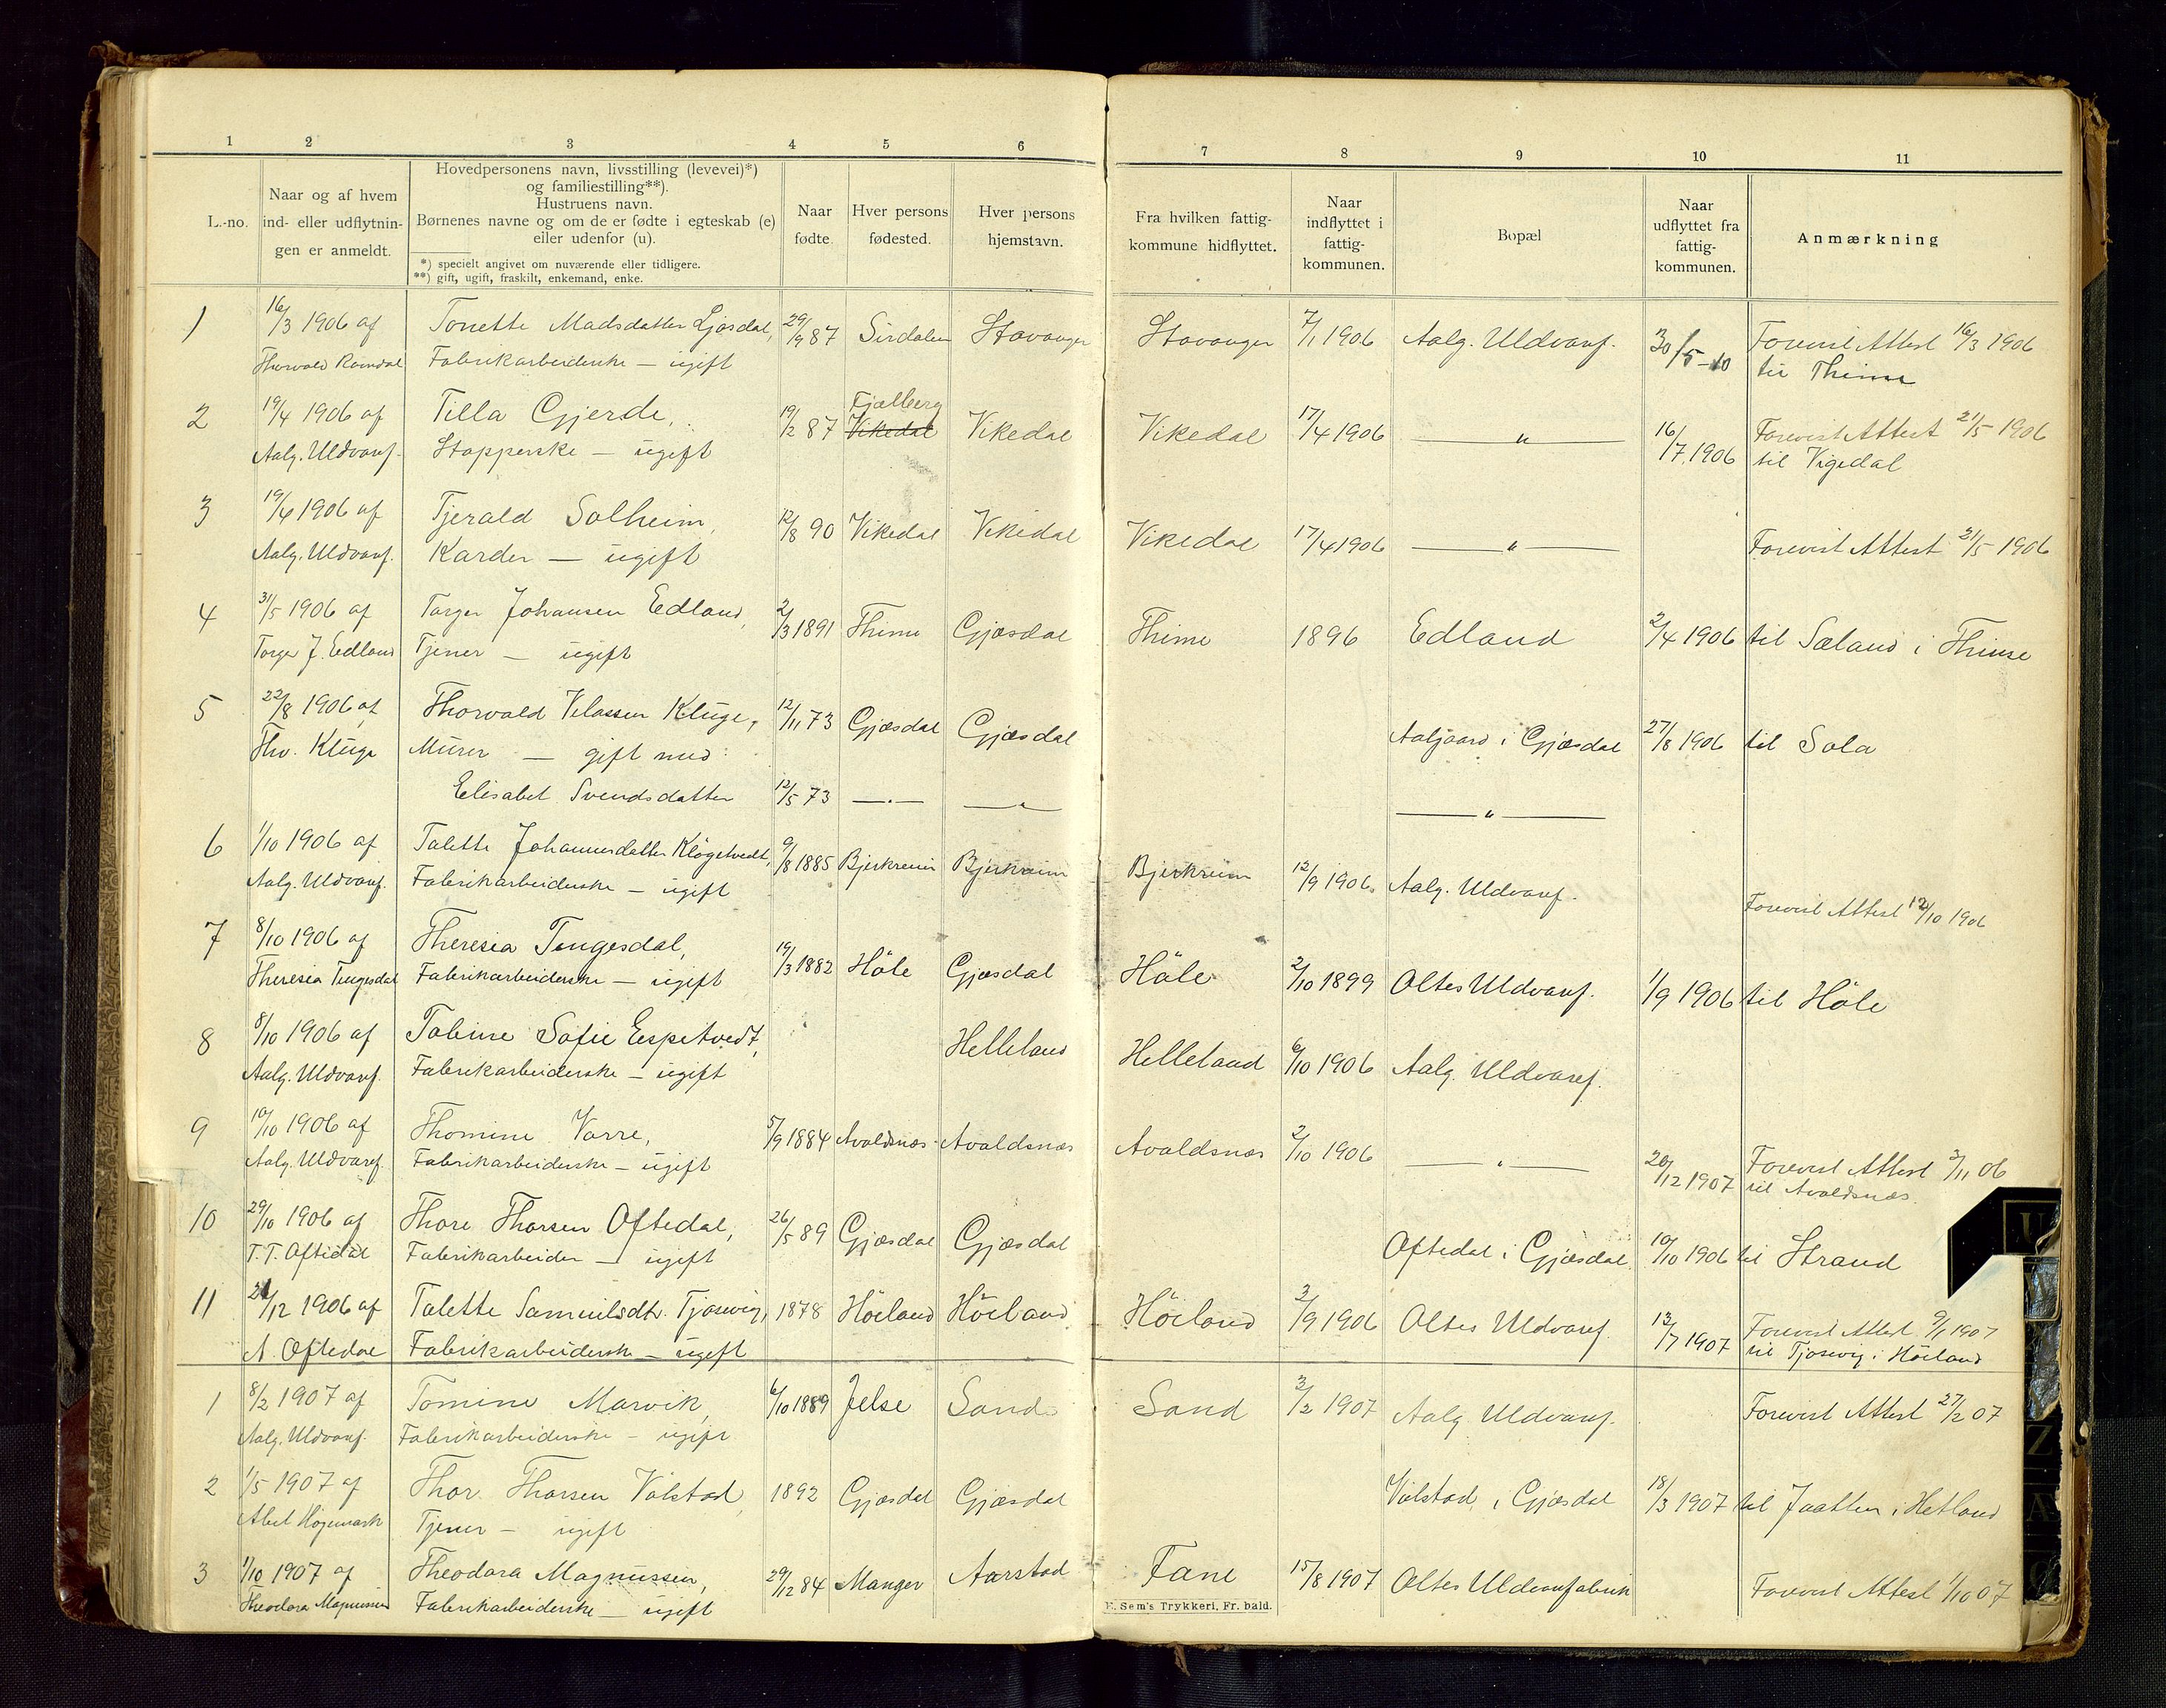 1 2 3 4 5 6 7 8 9 10 11
L.-no.
Naar og af hvem
ind- eller udflytnin-
gen er anmeldt.
Hovedpersonens navn, livsstilling (levevei)*)
og familiestilling**).
Hustruens navn.
Børnenes navne og om de er fødte i egteskab (e)
eller udenfor (u).
*) specielt angivet om nuværende eller tidligere.
**) gift, ugift, fraskilt, enkemand, enke.
Naar
fødte.
Hver persons
fødested.
Hver persons
hjemstavn.
Fra hvilken fattig-
kommune hidflyttet.
Naar
indflyttet i
fattig-
kommunen.
Bopæl
Naar
udflyttet fra
fattig-
kommunen.
Anmærkning
1 16/3 1906 af Tonette Madsdatter Ljosdal, 29/9 87 Sirdalen Stavanger Stavanger 7/1 1906 Aalg. Uldvarf. 30/5-10 Forevist Attest 16/3 1906
Thorvald Ramdal Fabrikarbeiderske — ugift til Thime
2 19/4 1906 af Tilla Gjerde, 19/2 87 Fjælberg Vikedal Vikedal Vikedal 17/4 1906 — " — 16/7 1906 Forevist Attest 21/5 1906
Aalg. Uldvarf. Stopperske — ugift til Vigedal
3 19/4 1906 af Tjerald Solheim, 12/8 90 Vikedal Vikedal Vikedal 17/4 1906 — " — Forevist Attest 21/5 1906
Aalg. Uldvarf. Karder — ugift
4 31/5 1906 af Torger Johansen Edland, 2/3 1891 Thime Gjæsdal Thime 1896 Edland 2/4 1906 til Sæland i Thime
Torger J. Edland Tjener — ugift
5 22/8 1906 af Thorvald Velassen Kluge, 12/11 73 Gjæsdal Gjæsdal Aalgaard i Gjæsdal 27/8 1906 til Sola
Thv. Kluge Murer — gift med:
Elisabet Svendsdatter 12/5 73 — " — — " — — " —
6 1/10 1906 af Talette Johannesdatter Kløgetvedt, 9/8 1885 Bjerkreim Bjerkreim Bjerkreim 12/9 1906. Aalg. Uldvarf. Forevist Attest 12/10 1906
Aalg. Uldvarf. Fabrikarbeiderske — ugift
7 8/10 1906 af Theresia Tengesdal, 19/3 1882 Höle Gjæsdal Höle 2/10 1899 Oltes Uldvarf. 1/9 1906 til Höle
Theresia Tengesdal Fabrikarbeiderske — ugift
8 8/10 1906 af Tobine Sofie Eespetvedt, Helleland Helleland 6/10 1906 Aalg. Uldvaref.
Aalg. Uldvarf. Fabrikarbeiderske — ugift
9 10/10 1906 af Thomine Varre, 5/9 1884 Avaldsnæs Avaldsnæs Avaldsnæs 2/10 1906 — " — 20/12 1907 Forevist Attest 3/11 06
Aalg. Uldvaref. Fabrikarbeiderske — ugift til Avaldsnæs.
10 29/10 1906 af Thore Thorsen Oftedal, 26/5 89 Gjæsdal Gjæsdal Oftedal i Gjæsdal 10/10 1906 til Strand
T. T. Oftedal Fabrikarbeider — ugift
11 21/12 1906 af Talette Samuelsdtr. Tjosevig, 1878 Höiland Höiland Höiland 3/9 1906 Oltes Uldvarf. 13/7 1907 Forevist Attest 9/1 1907
A. Oftedal Fabrikarbeiderske — ugift til Tjosevig i Höiland
1 8/2 1907 af Tomine Marvik, 6/10 1889 Jelse Sand Sand 3/2 1907 Aalg. Uldvarf. Forevist Attest 27/2 07
Aalg. Uldvarf. Fabrikarbeiderske — ugift
2 1/5 1907 af Thor Thorsen Välstad, 1892 Gjæsdal Gjæsdal Välstad i Gjæsdal 18/3 1907 til Jaatten i Hetland
Abel Högemark Tjener — ugift
3 1/10 1907 af Theodora Magnussen, 29/12 84 Manger Aarstad Fane 15/8 1907 Oltes Uldvarefabrik Forevist Attest 1/10 07
Theodora Magnussen Fabrikarbeiderske — ugift
E. Sem's Trykkeri, Fr. hald.